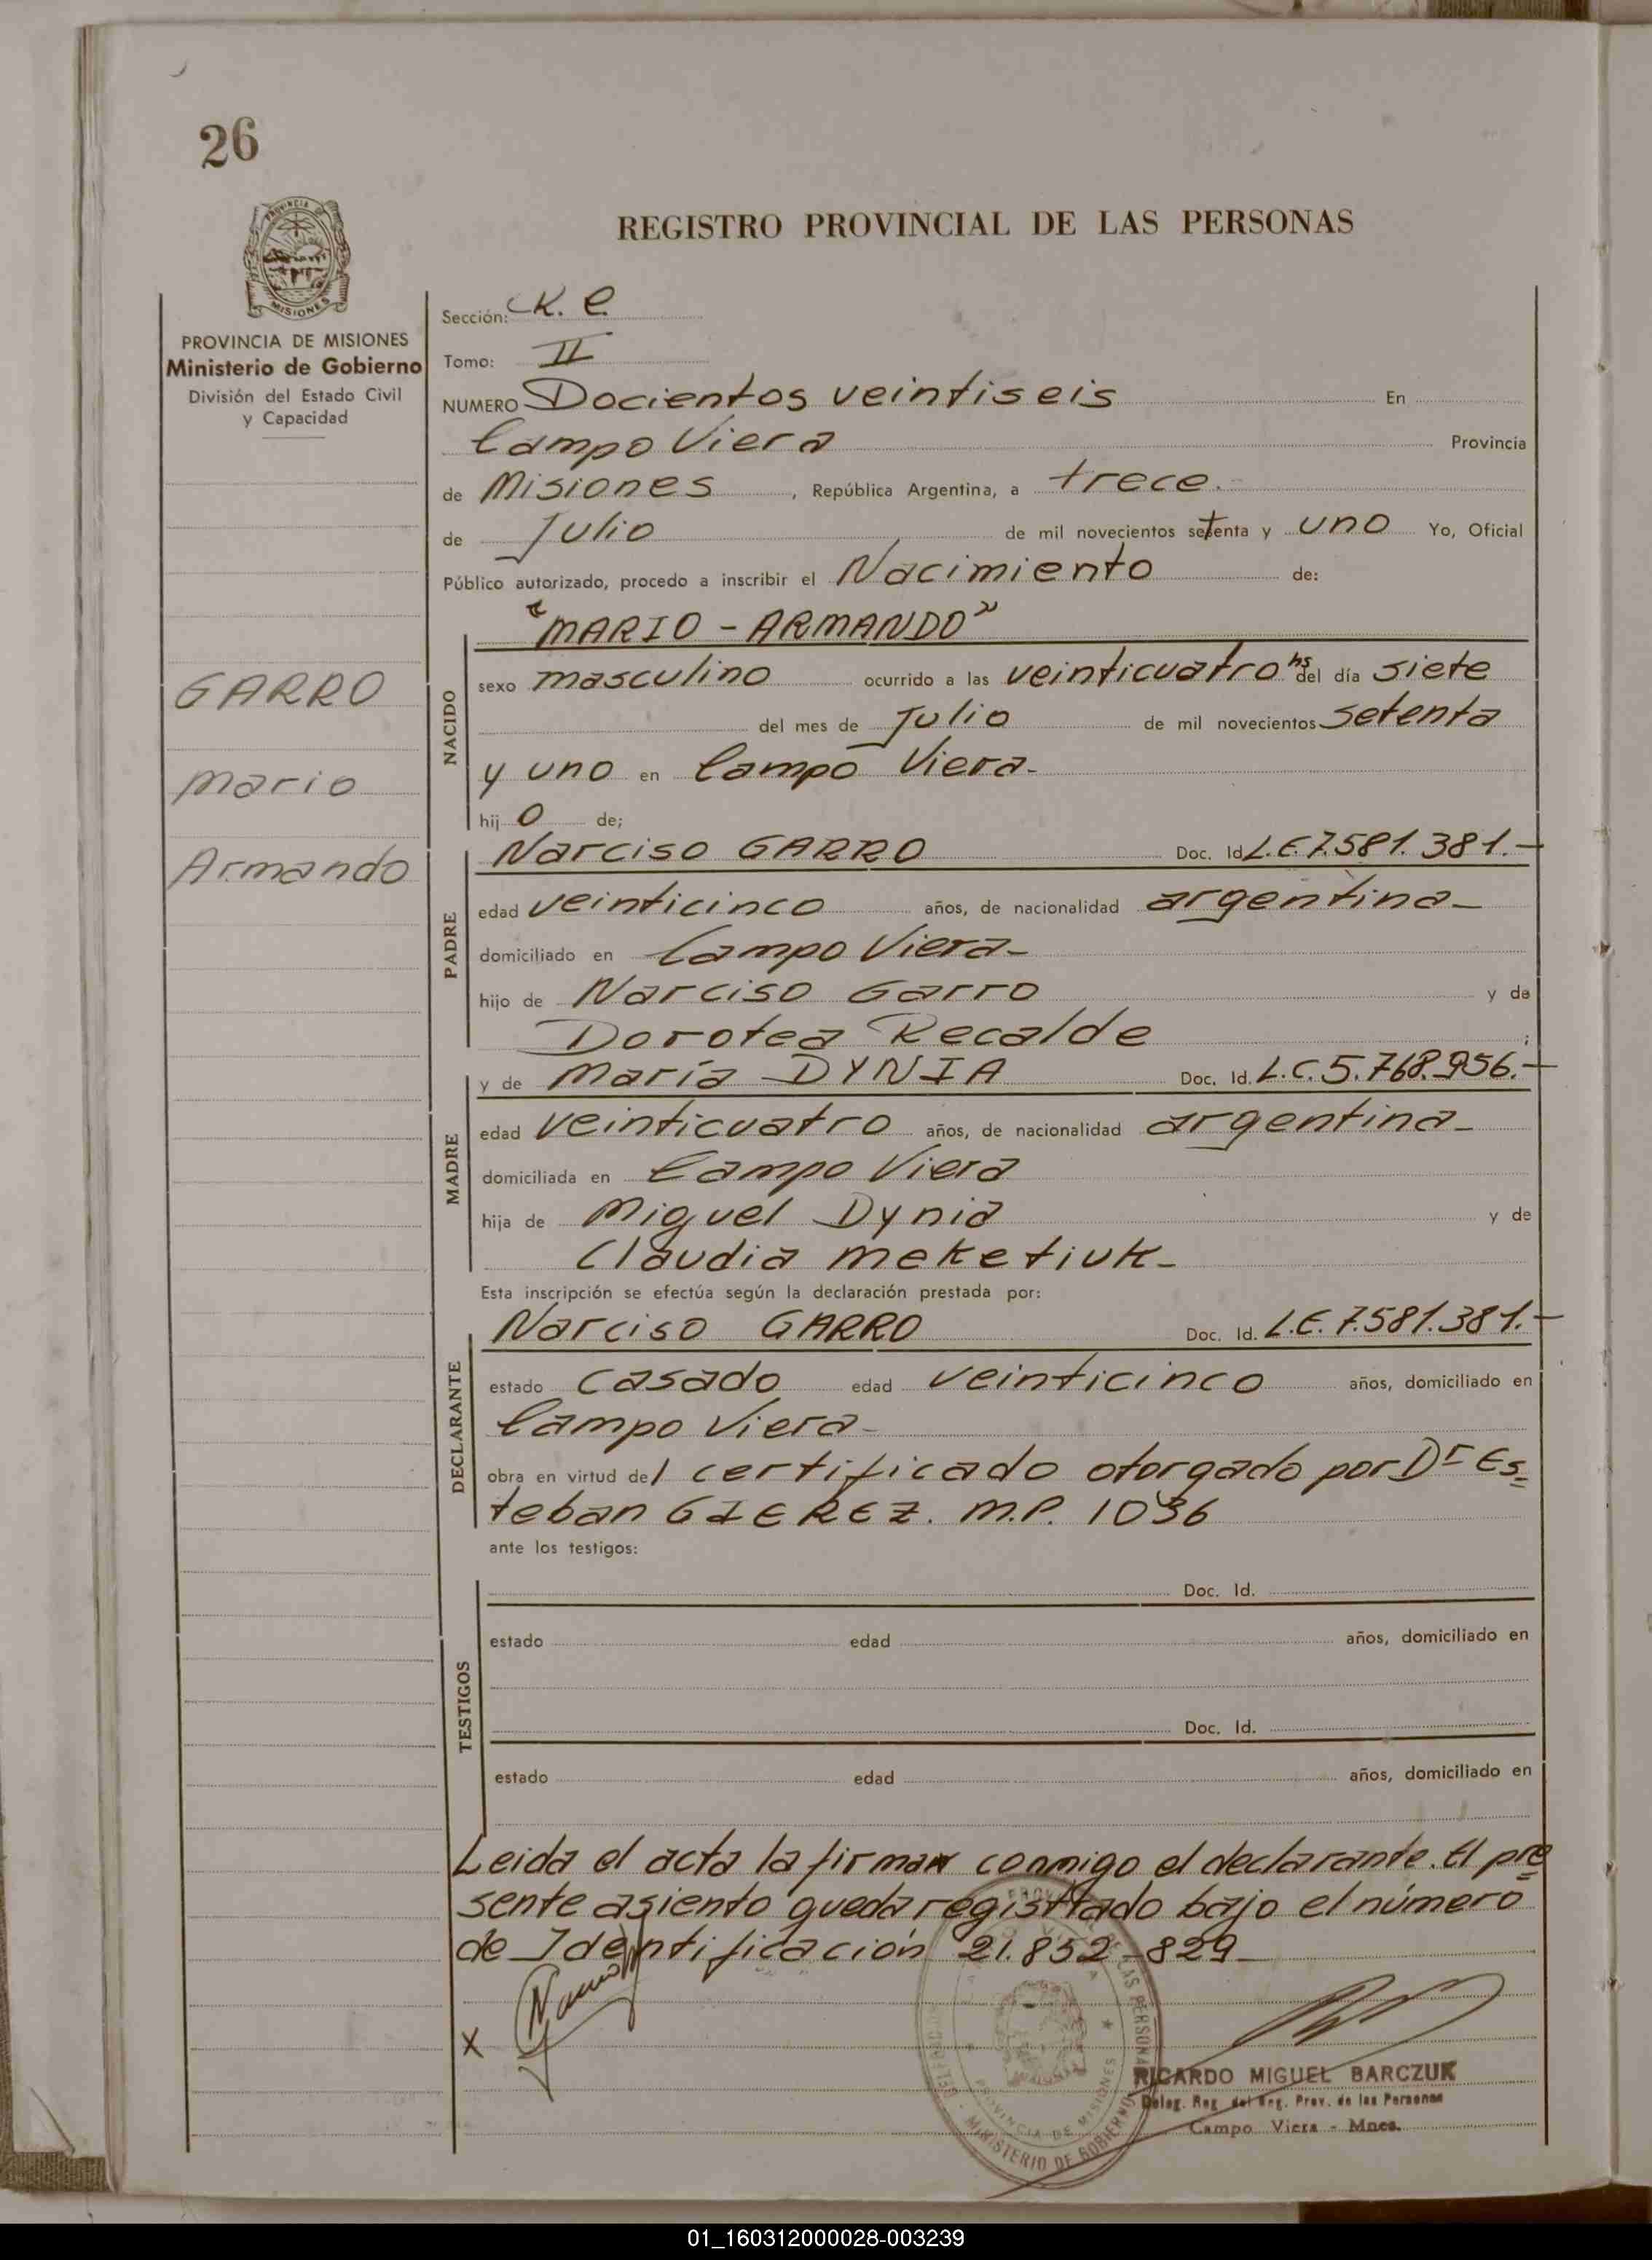 26
REGISTRO PROVINCIAL DE LAS PERSONAS
PROVINCIA DE MISIONES
Ministerio de Gobierno
División del Estado Civil
y Capacidad
GARRO
Mario
Armando
Sección: K. C.
Tomo: II
NUMERO Docientos veintiseis En
Campo Viera Provincia
de Misiones, República Argentina, a trece.
de Julio de mil novecientos setenta y uno Yo, Oficial
Público autorizado, procedo a inscribir el Nacimiento de:
"MARIO - ARMANDO"
NACIDO
sexo masculino ocurrido a las veinticuatro hs del día siete
del mes de Julio de mil novecientos setenta
y uno en Campo Viera-
hij o de;
Narciso GARRO Doc. Id L.E. 7.581.381.-
PADRE
edad veinticinco años, de nacionalidad argentina-
domiciliado en Campo Viera-
hijo de Narciso Garro y de
Dorotea Recalde ;
y de María DYNIA Doc. Id. L.C. 5.768.956.-
MADRE
edad veinticuatro años, de nacionalidad argentina-
domiciliada en Campo Viera
hija de Miguel Dynia y de
Claudia Meketiuk-
Esta inscripción se efectúa según la declaración prestada por:
Narciso GARRO Doc. Id. L.E. 7.581.381.-
DECLARANTE
estado casado edad veinticinco años, domiciliado en
Campo Viera-
obra en virtud del certificado otorgado por Dr Es=
teban GIEREZ. M.P. 1036
ante los testigos:
TESTIGOS
Doc. Id.
estado edad años, domiciliado en
Doc. Id.
estado edad años, domiciliado en
Leida el acta la firman conmigo el declarante. El pre
sente asiento queda registrado bajo el número
de Identificación 21.852-829-
X
RICARDO MIGUEL BARCZUK
Deleg. Reg. del Reg. Prov. de las Personas
Campo Viera - Mnes.
PROVINCIA DE MISIONES
MINISTERIO DE GOBIERNO
01_160312000028-003239